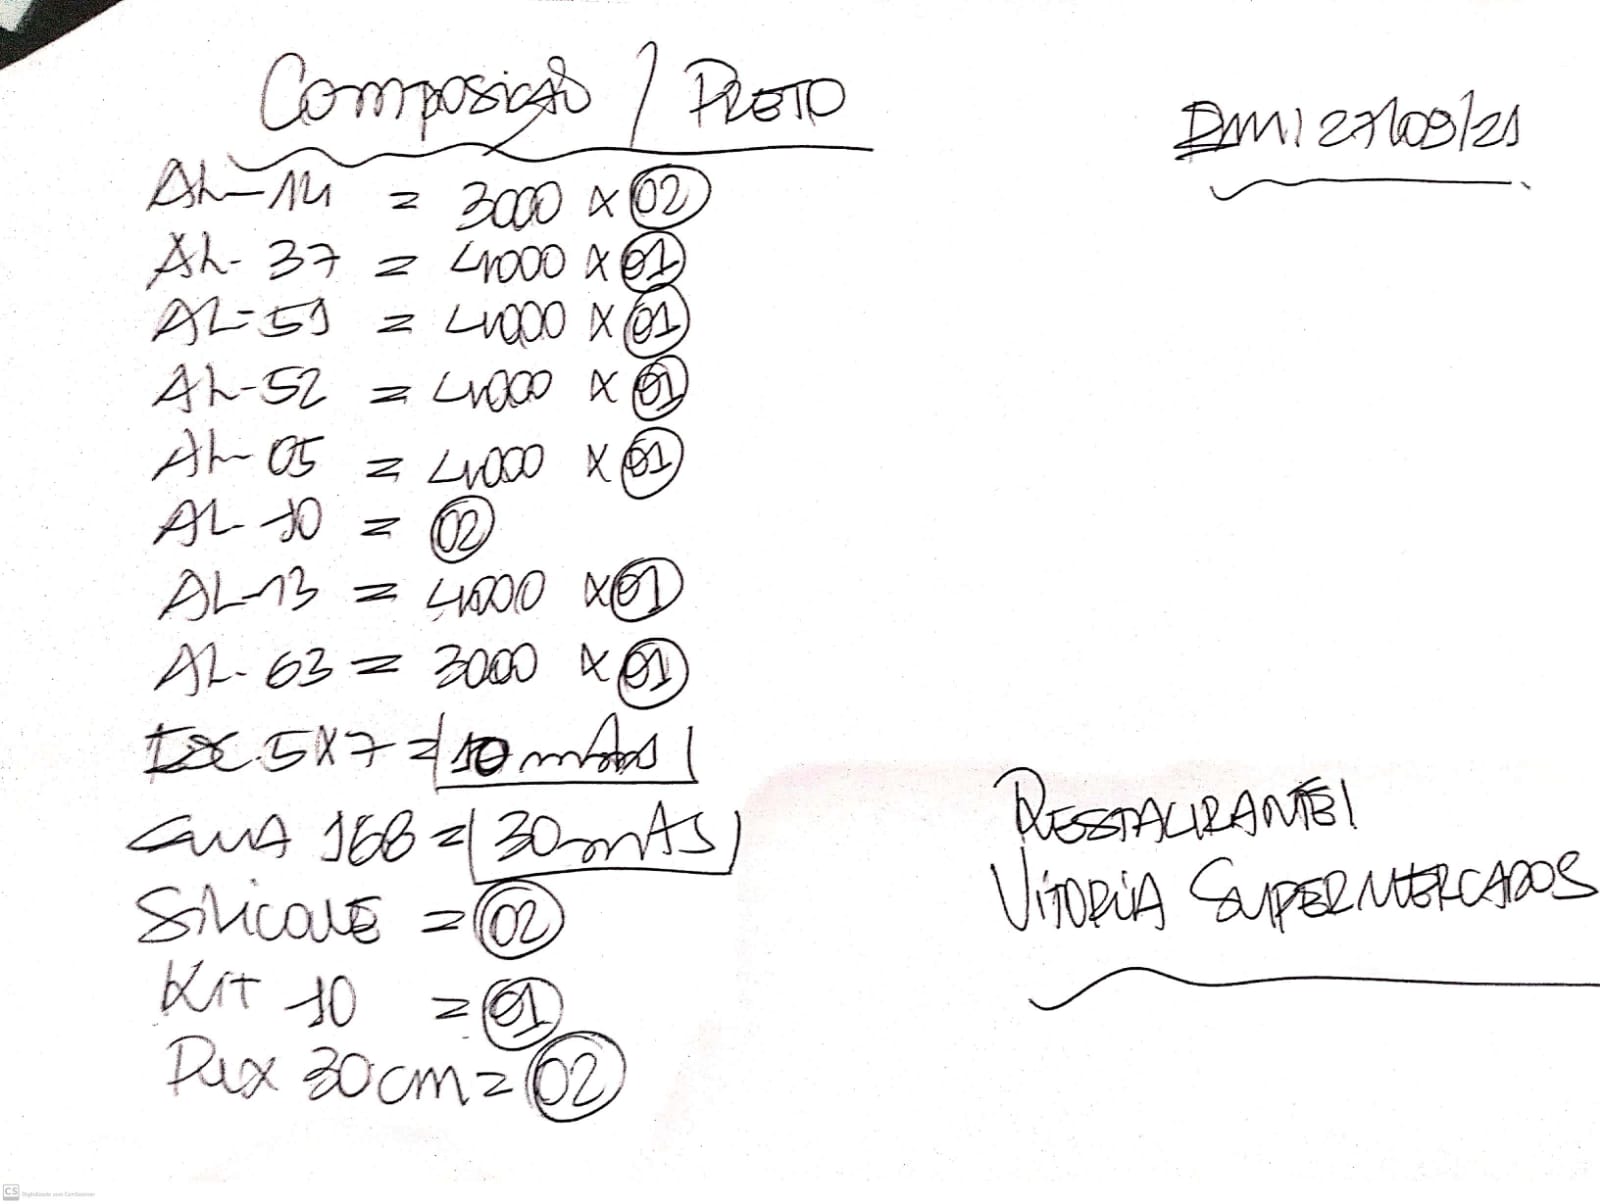 Composição / PRETO
EM 27/09/21
AL-14 = 3000 x 02
AL-37 = 4000 x 01
AL-51 = 4000 x 01
AL-52 = 4000 x 01
AL-05 = 4000 x 01
AL-10 = 02
AL-13 = 4000 x 01
AL-63 = 3000 x 01
5x7 = 10 mts
168 = 30 mts
RESTAURANTE/
VITORIA SUPERMERCADOS
SILICONE = 02
KIT 10 = 01
Pux 30cm = 02
CS Digitalizado com CamScanner